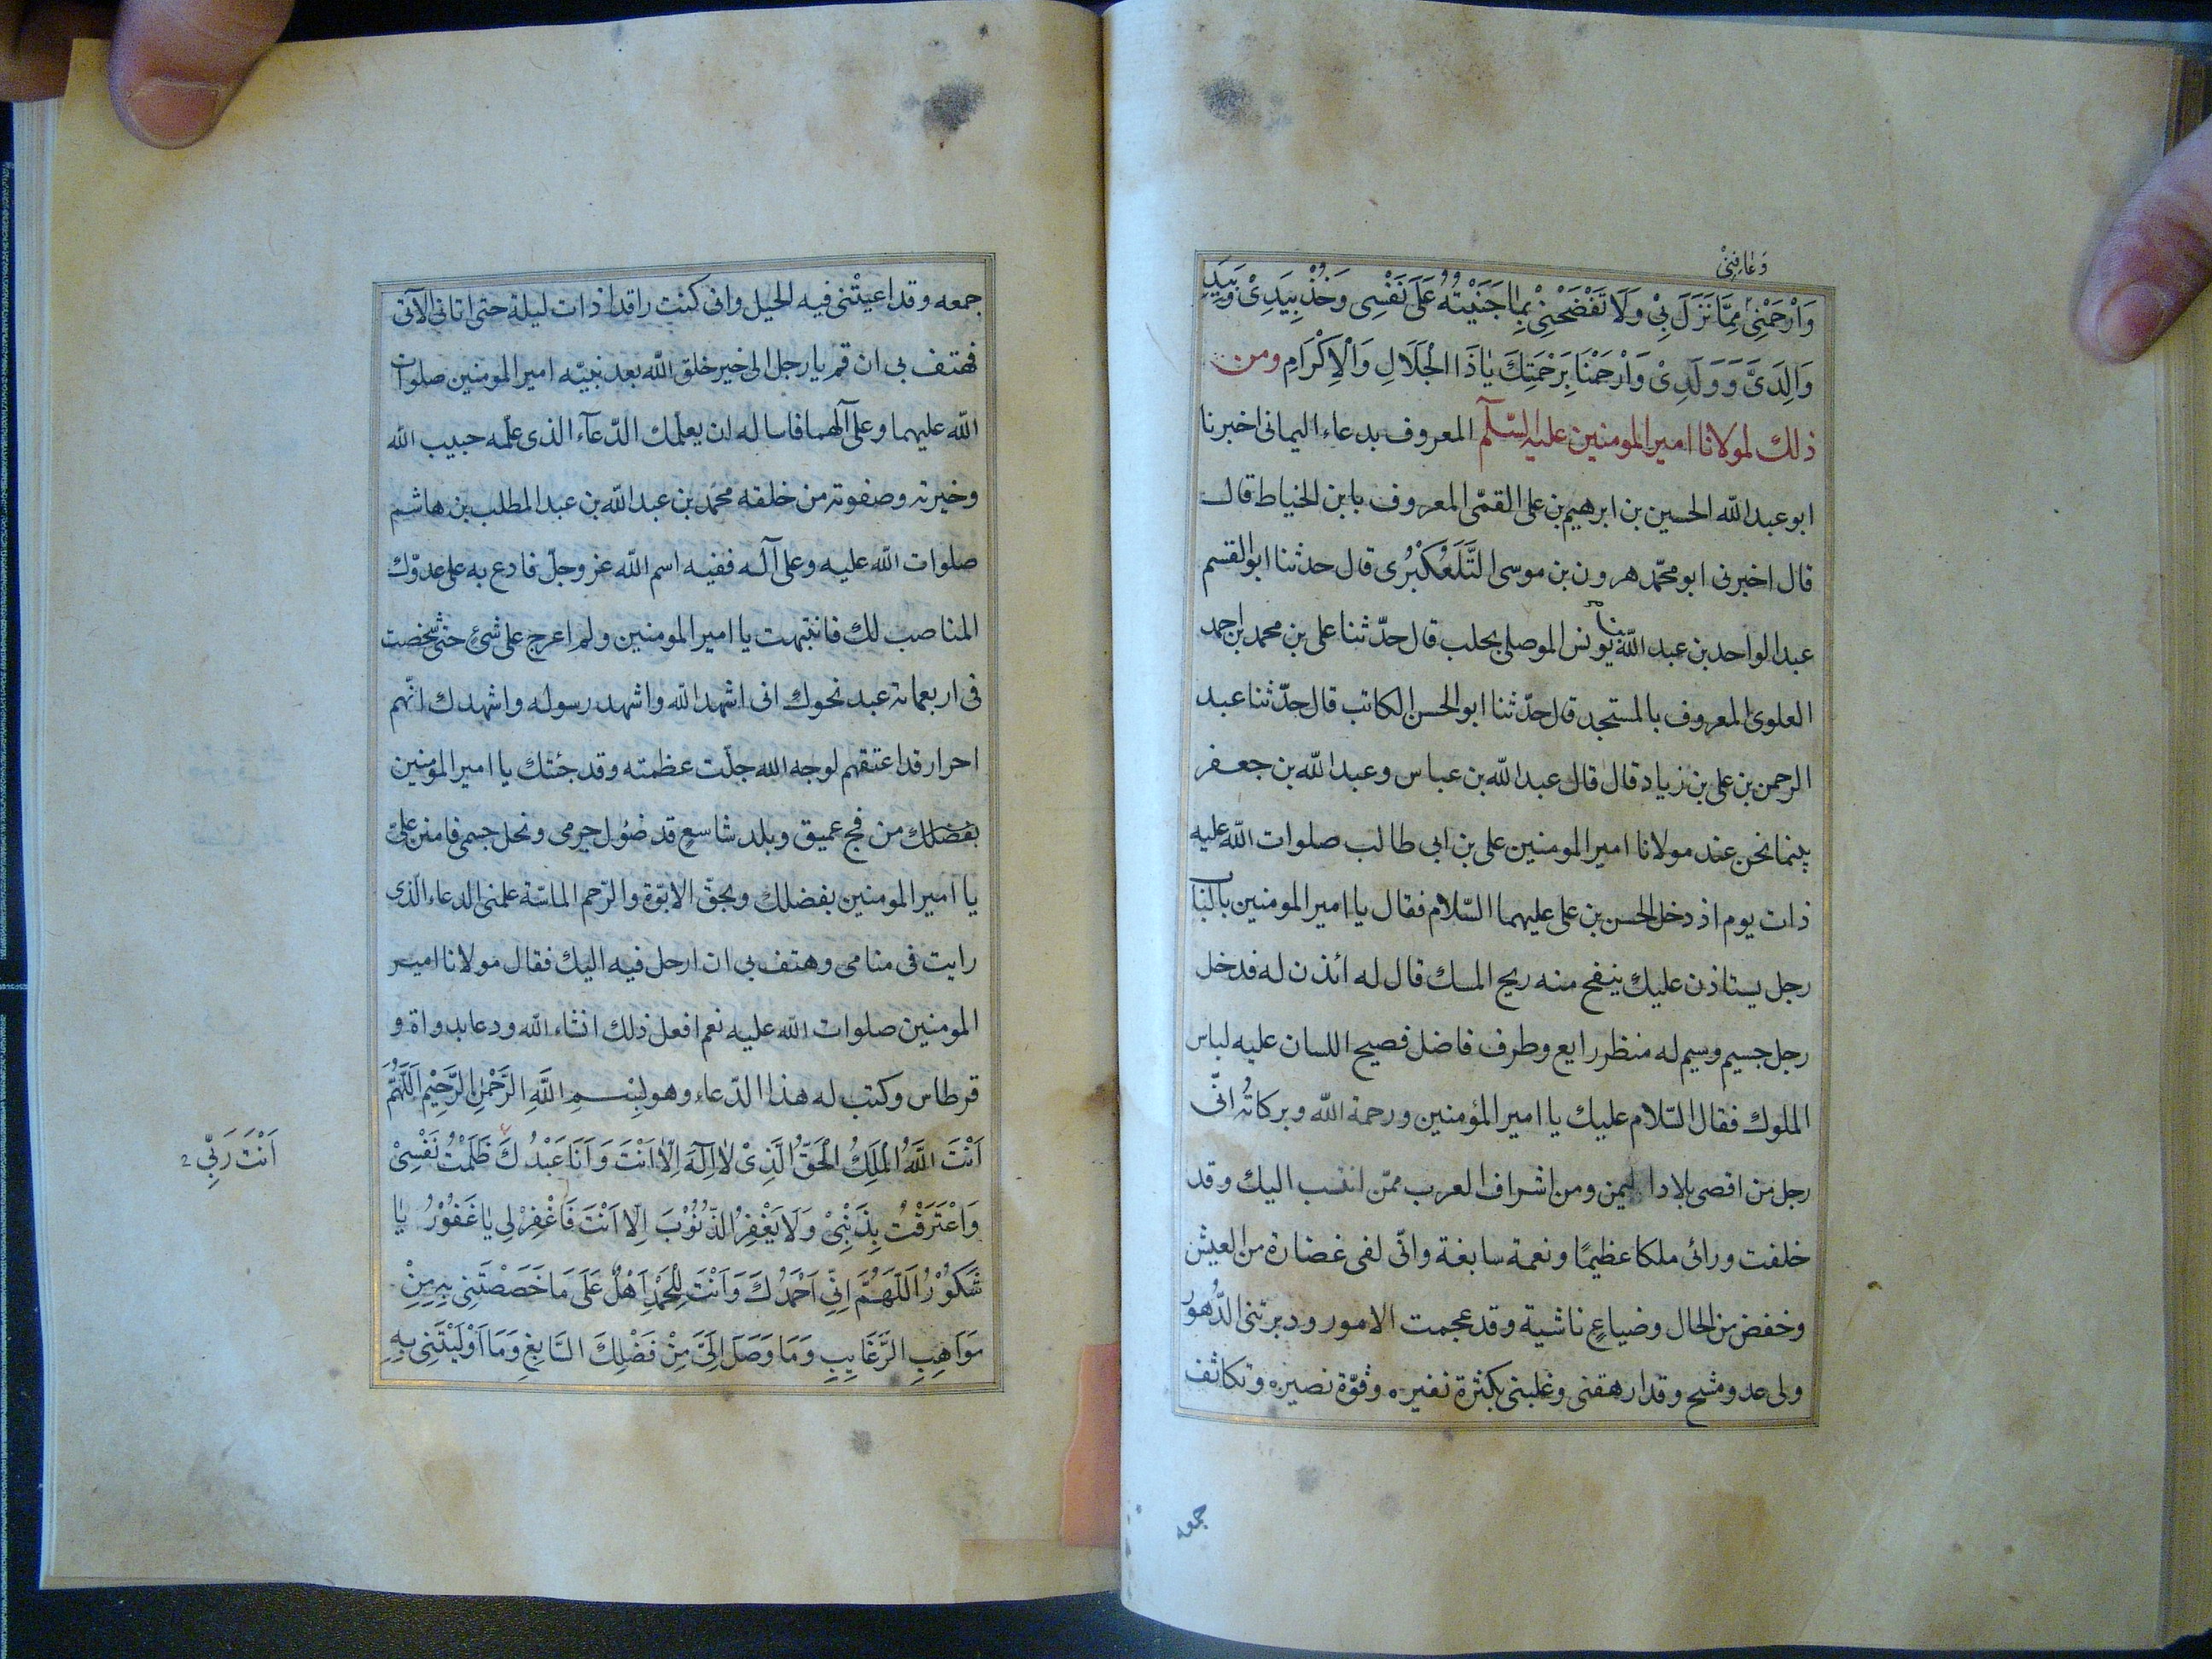 وَعَافِنِيْ
وَارْحَمْنِيْ مِمَّا نَزَلَ بِيْ وَلَا تَفْضَحْنِيْ بِمَا جَنَيْتُهُ عَلَى نَفْسِى وَخُذْ بِيَدِىْ وَبِيَدِ
وَالِدَىَّ وَوَلَدِىْ وَارْحَمْنَا بِرَحْمَتِكَ يَا ذَا الْجَلَالِ وَالْاِكْرَامِ ومن
ذلك لمولانا امير المومنين عليه السّلام المعروف بدعاء اليمانى اخبرنا
ابو عبد الله الحسين بن ابرهيم بن على القمّى المعروف بابن الخياط قال
قال اخبرنى ابو محمّد هرون بن موسى التَّلَعُكْبُرى قال حدثنا ابو القسم
عبد الواحد بن عبد الله يونس الموصلى بحلب قال حدّثنا على بن محمد بن احمد
العلوى المعروف بالمستجد قال حدّثنا ابو الحسن الكاتب قال حدّثنا عبد
الرحمن بن على بن زياد قال قال عبد الله بن عباس وعبد الله بن جعفر
بينما نحن عند مولانا امير المومنين على بن ابى طالب صلوات الله عليه
ذات يوم اذ دخل الحسن بن على عليهما السّلام فقال يا امير المومنين بالباب
رجل يستاذن عليك ينفح منه ريح المسك قال له ائذن له فدخل
رجل جسيم وسيم له منظر رايع وطرف فاضل فصيح اللسان عليه لباس
الملوك فقال السّلام عليك يا امير المؤمنين ورحمة الله وبركاتُه انّى
رجل من اقصى بلاد اليمن ومن اشراف العرب ممّن انتسب اليك وقد
خلفت ورائى ملكا عظيمًا ونعمة سابغة وانّى لفى غضارة من العيش
وخفض من الحال وضياعٍ ناشية وقد عجمت الامور ودبرتنى الدُّهور
ولى عدو مشح وقد ارهقنى وغلبنى بكثرة نفيره وقوّة نصيره وتكاثف
جمعه
جمعه وقد اعيتْنى فيه الحيل وانى كنت راقدا ذات ليلة حتى اتانى الآتى
فهتف بى ان قم يا رجل الى خير خلق الله بعد نبيّه امير المومنين صلوات
الله عليهما وعلى آلهما فاساله ان يعلّمك الدّعآء الذى علّمه حبيب الله
وخيرته وصفوته من خلقه محمّد بن عبد الله بن عبد المطلب بن هاشم
صلوات الله عليه وعلى آله ففيه اسم الله عز وجلّ فادع به على عدوّك
المناصب لك فانتبهت يا امير المومنين ولم اعرج على شئ حتى شخصت
فى اربعماته عبد نحوك انى اشهد الله واشهد رسوله واشهدك انّهم
احرار قد اعتقهم لوجه الله جلّت عظمته وقد جئتك يا امير المومنين
بفضلك من فج عميق وبلد شاسعٍ قد ضؤل جرمى ونحل جسمى فامنن علىّ
يا امير المومنين بفضلك وبحقّ الابوّة والرّحم الماسّة علمنى الدعاء الّذى
رايت فى منامى وهتف بى ان ارحل فيه اليك فقال مولانا امير
المومنين صلوات الله عليه نعم افعل ذلك انشاء الله ودعا بدواة و
قرطاس وكتب له هذا الدّعاء وهو بِسْمِ اللَّهِ الرَّحْمٰنِ الرَّحِيْمِ اَللَّهُمَّ
اَنْتَ اللَّهُ الْمَلِكُ الْحَقُّ الَّذِىْ لَا اِلٰهَ اِلَّا اَنْتَ وَاَنَا عَبْدُكَ ظَلَمْتُ نَفْسِىْ
اَنْتَ رَبِّي ۲
وَاعْتَرَفْتُ بِذَنْبِىْ وَلَا يَغْفِرُ الذُّنُوْبَ اِلَّا اَنْتَ فَاغْفِرْ لِى يَا غَفُوْرُ يَا
شَكُوْرُ اَللَّهُمَّ اِنِّى اَحْمَدُكَ وَاَنْتَ لِلْحَمْدِ اَهْلٌ عَلَى مَا خَصَصْتَنِى بِهِ مِنْ
مَوَاهِبِ الرَّغَايِبِ وَمَا وَصَلَ اِلَىَّ مِنْ فَضْلِكَ السَّابِغِ وَمَا اَوْلَيْتَنِى بِهِ